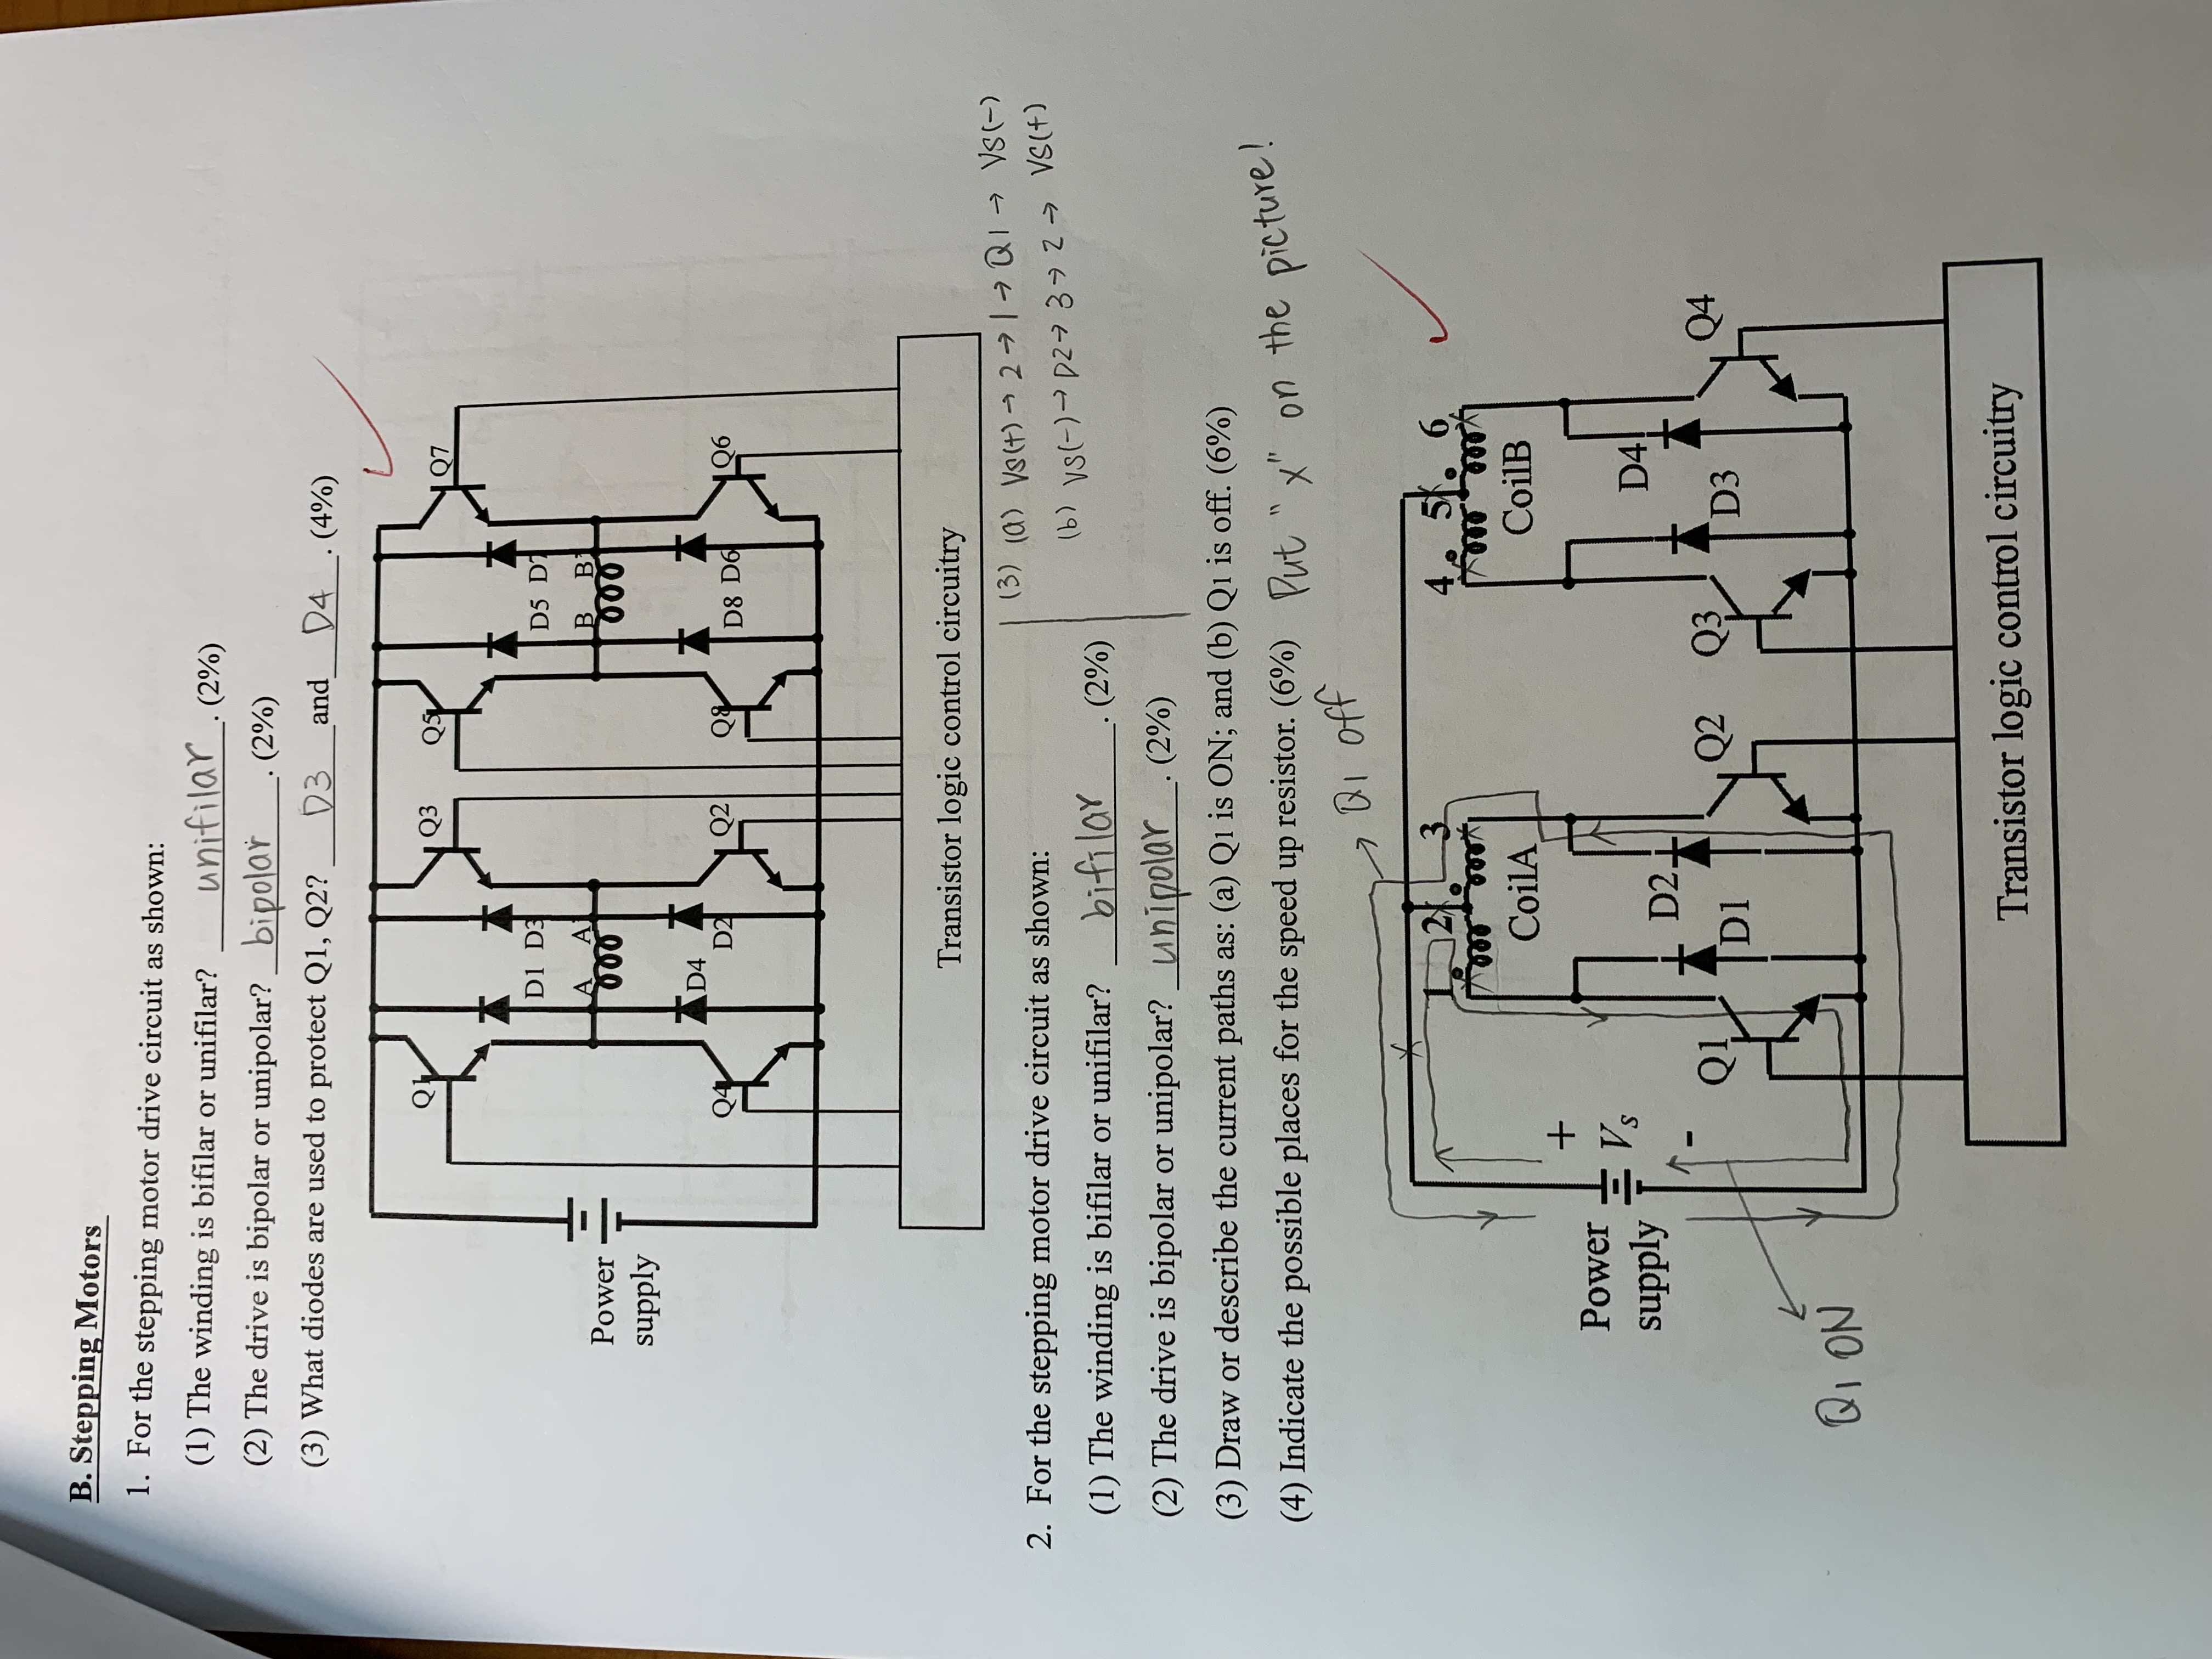 B. Stepping Motors
1. For the stepping motor drive circuit as shown:
(1) The winding is bifilar or unifilar? unifilar. (2%)
(2) The drive is bipolar or unipolar? bipolar. (2%)
(3) What diodes are used to protect Q1, Q2? D3 and D4. (4%)
Q1 Q3 Q5 Q7
D1 D3 D5 D7
A A' B B'
Power
supply
D4 D2 D8 D6
Q4 Q2 Q8 Q6
Transistor logic control circuitry
(3) (a) Vs(+) → 2 → 1 → Q1 → Vs(-)
(b) Vs(-) → D2 → 3 → 2 → Vs(+)
2. For the stepping motor drive circuit as shown:
(1) The winding is bifilar or unifilar? bifilar. (2%)
(2) The drive is bipolar or unipolar? unipolar. (2%)
(3) Draw or describe the current paths as: (a) Q1 is ON; and (b) Q1 is off. (6%)
(4) Indicate the possible places for the speed up resistor. (6%) Put "x" on the picture!
Q1 off
x
1 2 3 4 5 6
CoilA CoilB
+
Power
supply
Vs
-
D2 D4
Q1 D1 Q2 Q3 D3 Q4
Q1 ON
Transistor logic control circuitry